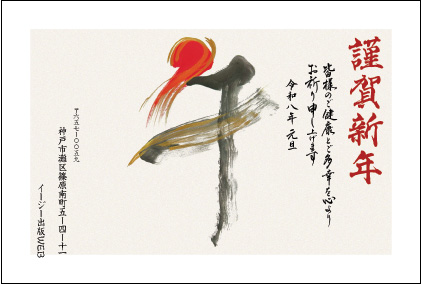 謹賀新年
皆様のご健康とご多幸を心より
お祈り申し上げます
令和八年 元旦
午
〒六五七-〇〇五九
神戸市灘区篠原南町五-四-十一
イージー出版WEB